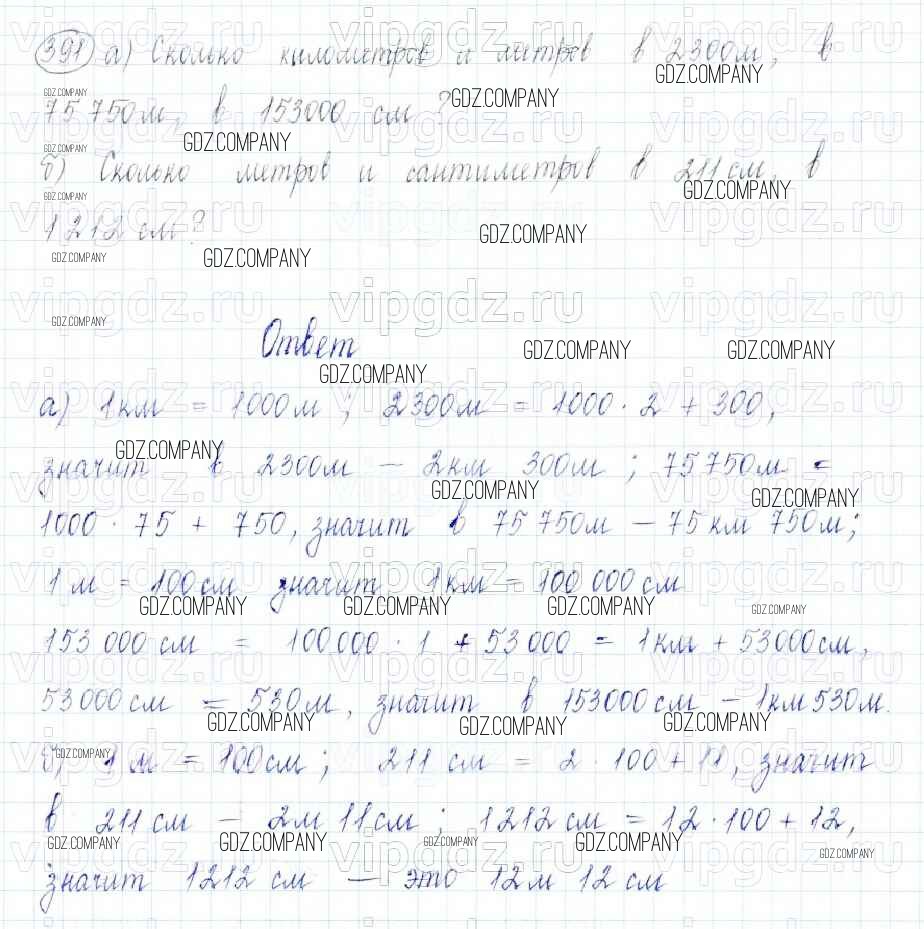 391 а) Сколько километров и метров в 2300м, в
75 750м, в 153000 см?
б) Сколько метров и сантиметров в 211 см, в
1212 см?
Ответ
а) 1км = 1000м ; 2300м = 1000 · 2 + 300,
значит в 2300м – 2км 300м ; 75 750м =
1000 · 75 + 750, значит в 75 750м – 75 км 750м;
1 м = 100см значит 1км = 100 000 см
153 000 см = 100 000 · 1 + 53 000 = 1км + 53000см,
53 000 см = 530м, значит в 153000см – 1км 530м.
б) 1 м = 100см ; 211 см = 2 · 100 + 11, значит
в 211 см – 2м 11 см ; 1212 см = 12 · 100 + 12,
значит 1212 см – это 12м 12 см
vipgdz.ru
GDZ.COMPANY